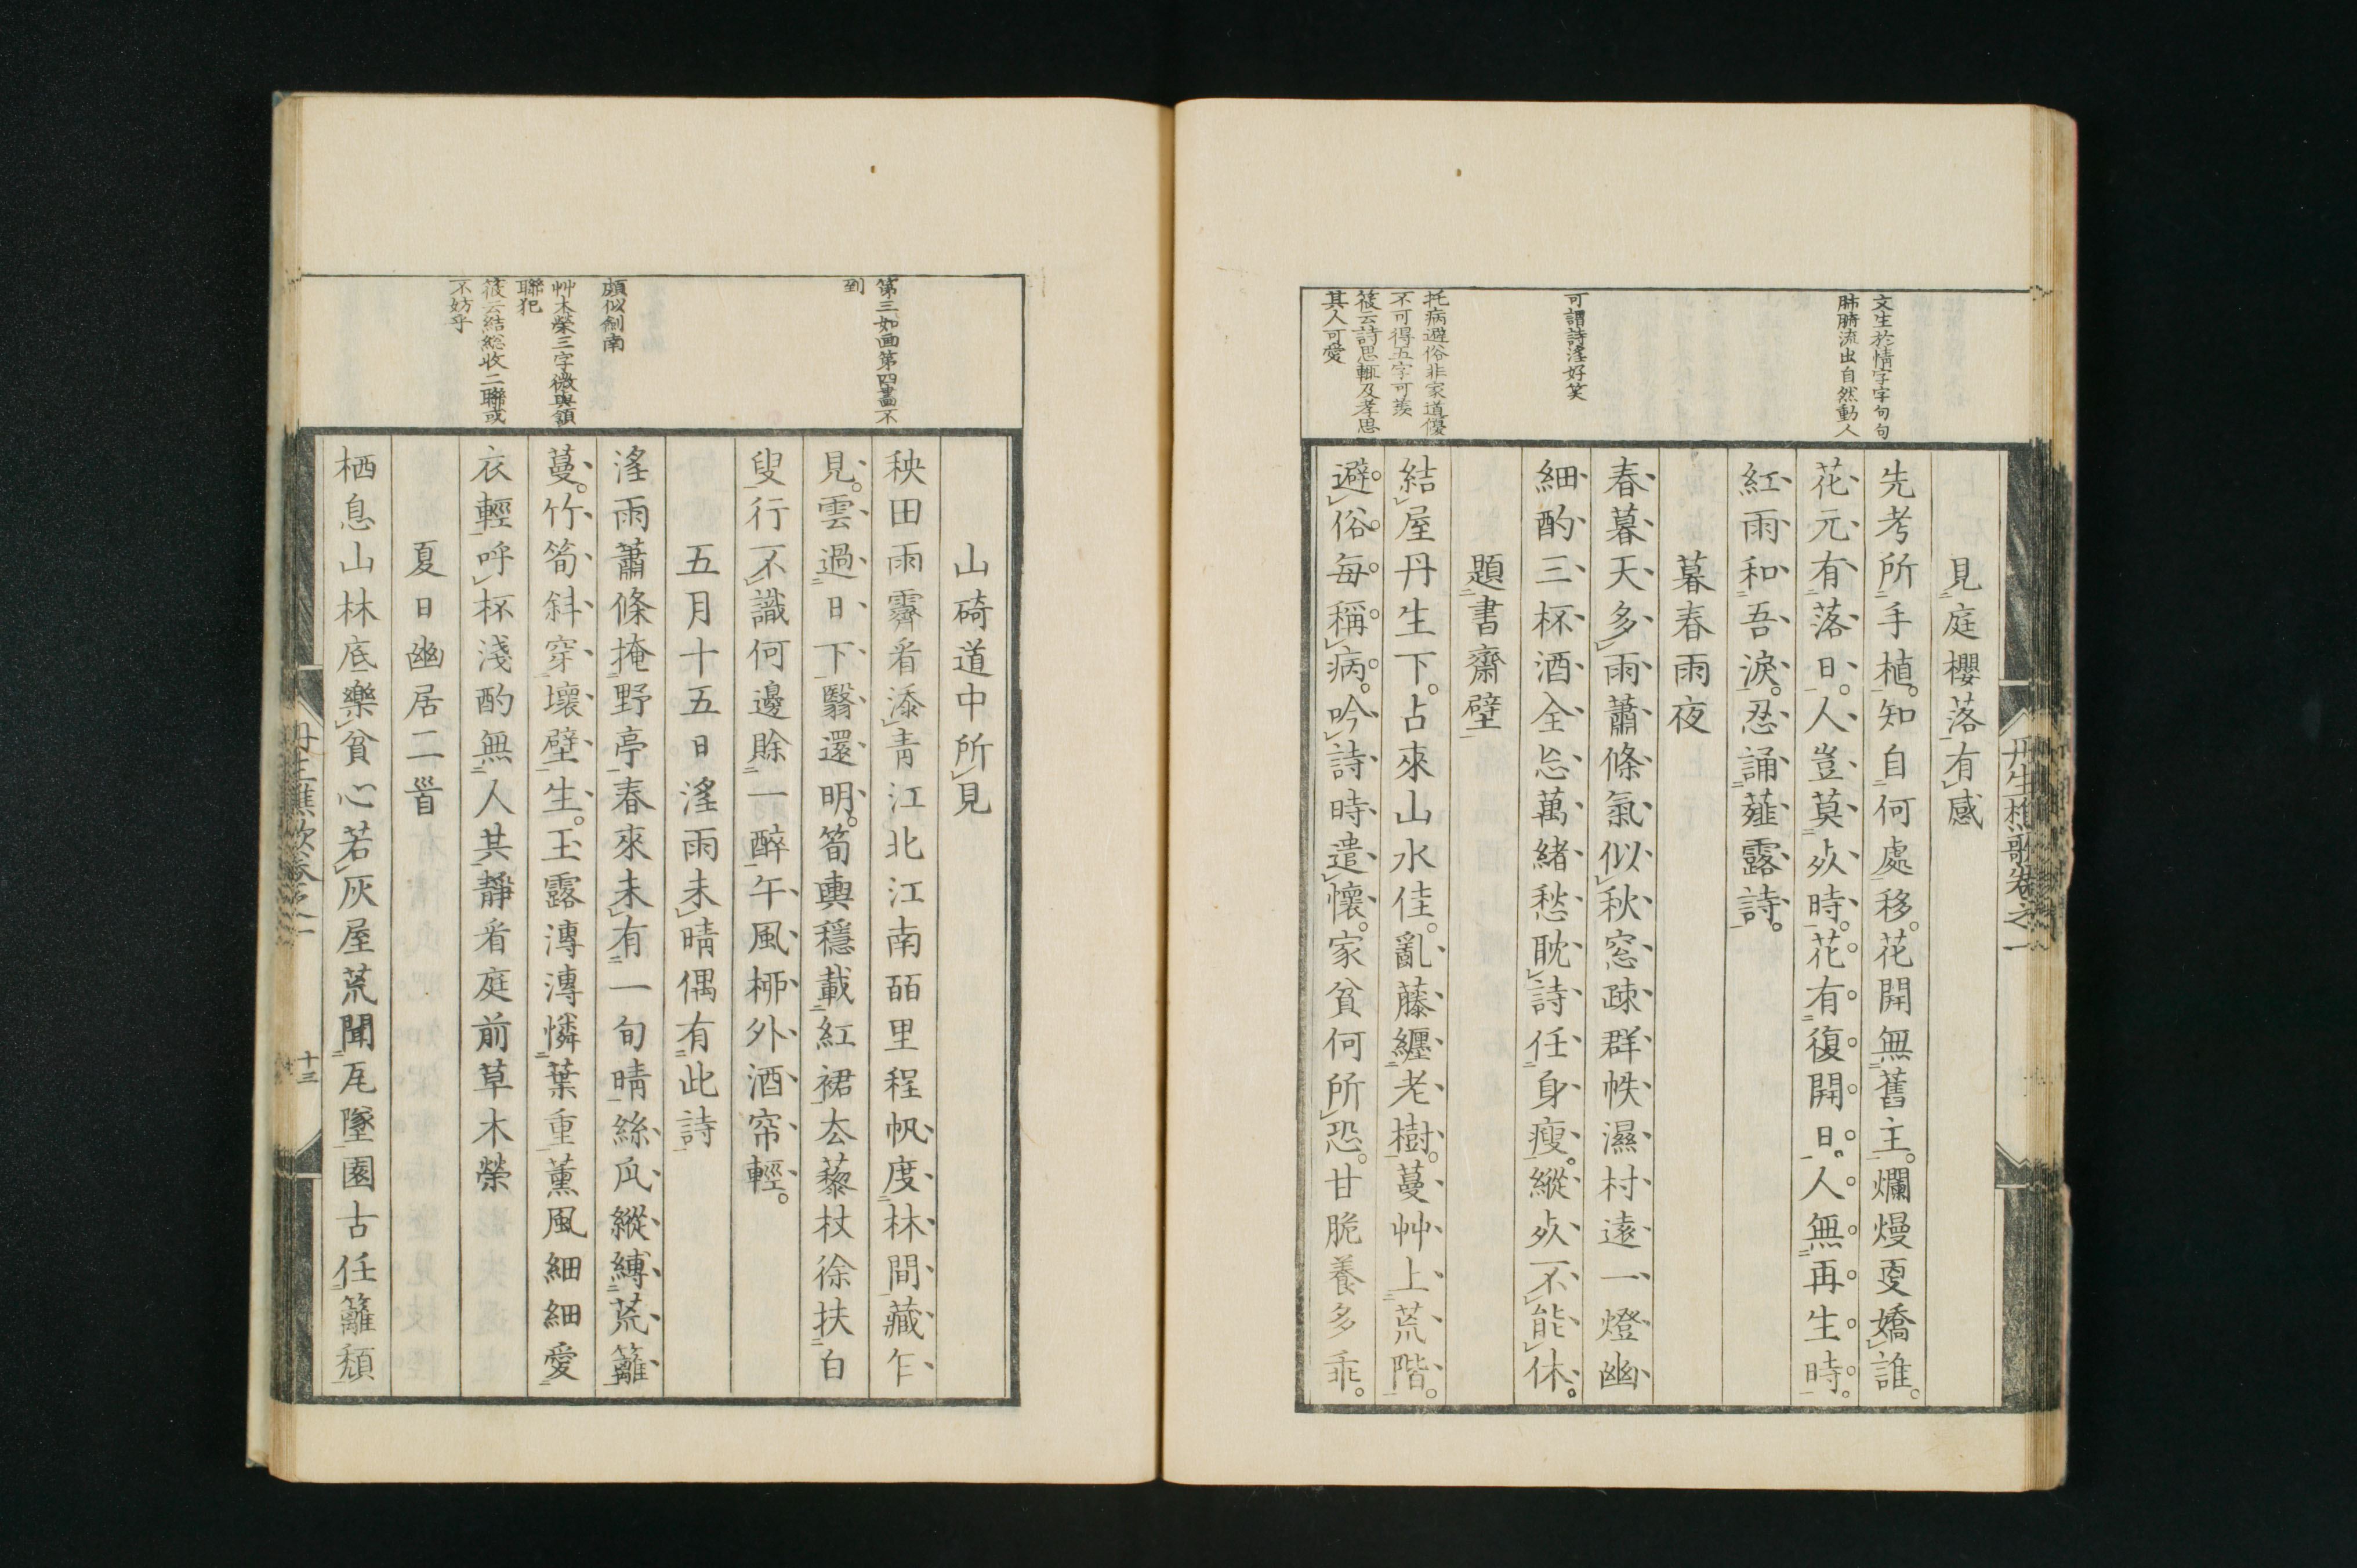 文生於情字字句句
肺腑流出自然動人
可謂詩淫好笑
托病避俗非家道優
不可得五字可羨
筱云詩思輒及孝思
其人可愛
丹生樵歌卷之一
見庭櫻落有感
先考所手植。知自何處移。花開無舊主。爛熳更嬌誰。
花元有落日。人豈莫歿時。花有復開日。人無再生時。
紅雨和吾淚。忍誦薤露詩。
暮春雨夜
春暮天多雨蕭條氣似秋窓疎群帙濕村遠一燈幽
細酌三杯酒全忘萬緒愁耽詩任身瘦。縱歿不能休。
題書齋壁
結屋丹生下。占來山水佳。亂藤纏老樹。蔓艸上荒階。
避俗每稱病。吟詩時遣懷。家貧何所恐。甘脆養多乖。
第三如画第四畵不
到
頗似劍南
艸木榮三字微與頷
聯犯
筱云結総收二聯或
不妨乎
山碕道中所見
秧田雨霽看添青江北江南皕里程帆度林間藏乍
見。雲過日下翳還明。筍輿穩載紅裙去藜杖徐扶白
叟行不識何邊賖一醉午風桺外酒帘輕。
五月十五日淫雨未晴偶有此詩
淫雨蕭條掩野亭春來未有一旬晴絲瓜縱縛荒籬
蔓。竹筍斜穿壞壁生。玉露漙漙憐葉重薰風細細愛
衣輕呼杯淺酌無人共靜看庭前草木榮
夏日幽居二首
栖息山林底樂貧心若灰屋荒聞瓦墜園古任籬頹
丹生樵歌卷之一
十三